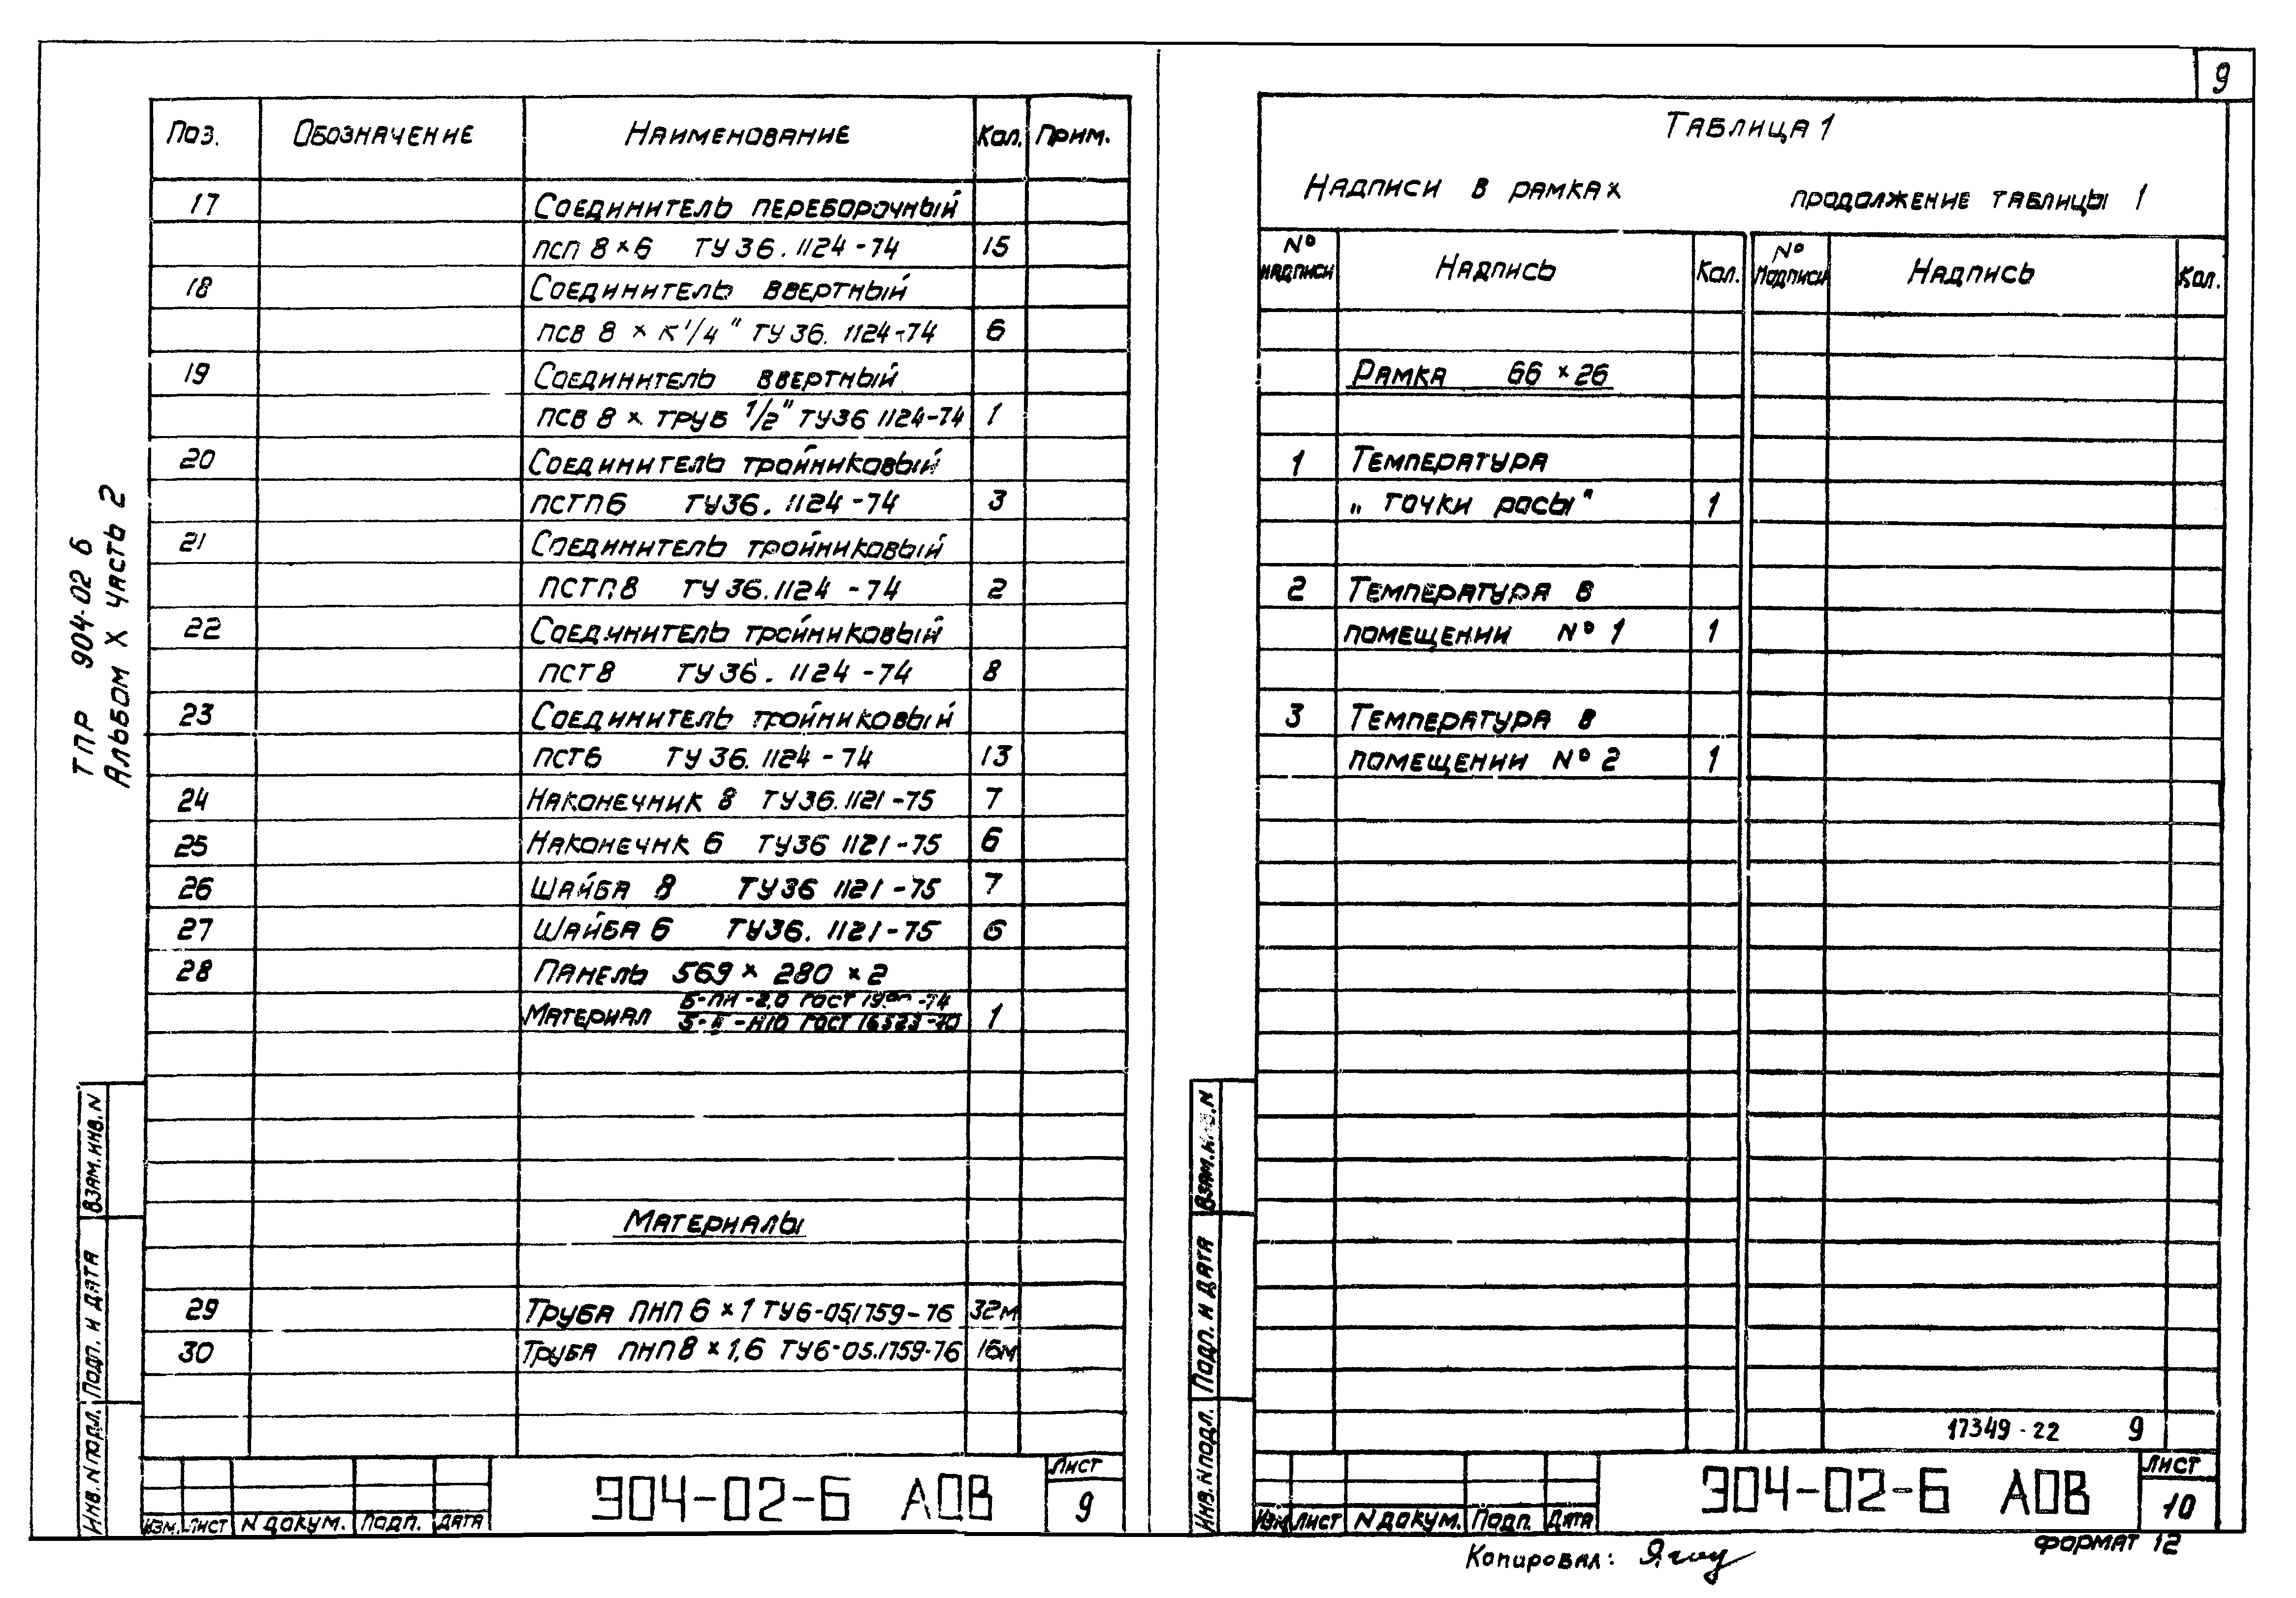 9
ТПР 904-02 б
Альбом X часть 2
Поз. Обозначение Наименование Кол. Прим.
17 Соединитель переборочный
псп 8×6 ТУ 36.1124-74 15
18 Соединитель ввертный
псв 8 × К 1/4" ТУ 36.1124-74 6
19 Соединитель ввертный
псв 8 × труб 1/2" ТУ36 1124-74 1
20 Соединитель тройниковый
пстп6 ТУ36.1124-74 3
21 Соединитель тройниковый
пстп.8 ТУ 36.1124-74 2
22 Соединитель тройниковый
пст8 ТУ 36.1124-74 8
23 Соединитель тройниковый
пст6 ТУ 36.1124-74 13
24 Наконечник 8 ТУ36.1121-75 7
25 Наконечнк 6 ТУ36 1121-75 6
26 Шайба 8 ТУ36 1121-75 7
27 Шайба 6 ТУ36.1121-75 6
28 Панель 569 × 280 × 2
Б-ПН-2,0 ГОСТ -74
Материал 1
ГОСТ 16523-70
Материалы
29 Труба ПНП 6 × 1 ТУ6-05.1759-76 32м
30 Труба ПНП 8 × 1,6 ТУ6-05.1759-76 16м
Взам.инв.N
Подп. и дата
Инв.N подл.
Изм. Лист N докум. Подп. Дата
904-02-Б АОВ
Лист
9
Таблица 1
Надписи в рамках
продолжение таблицы 1
№ надписи Надпись Кол. № подписи Надпись Кол.
Рамка 66 × 26
1 Температура
„точки росы" 1
2 Температура в
помещении № 1 1
3 Температура в
помещении № 2 1
17349-22 9
Взам.инв.N
Подп. и дата
Инв.N подл.
Изм Лист N докум. Подп. Дата
904-02-Б АОВ
Лист
10
Копировал:
формат 12